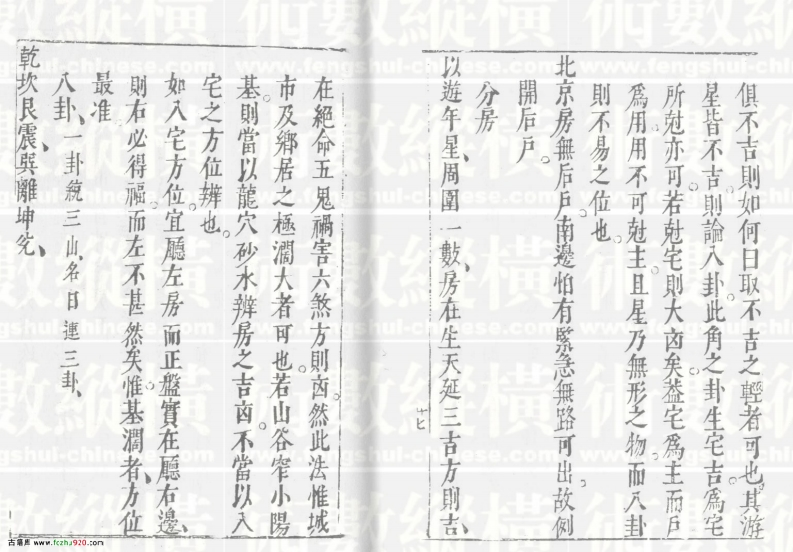 俱不吉則如何曰取不吉之輕者可也其游
星皆不吉則論入卦此角之卦生宅吉爲宅
所尅亦可若尅宅則大凶矣葢宅爲主而戶
爲用用不可尅主且星乃無形之物而八卦
則不易之位也
北京房無后戶南邊怕有緊急無路可出故例
開后戶
分房
以遊年星周圍一數房在生天延三吉方則吉
在絕命五鬼禍害六煞方則凶然此法惟城
市及鄉居之極濶大者可也若山谷窄小陽
基則當以龍穴砂水辨房之吉凶不當以入
宅之方位辨也
如入宅方位宜廳左房而正盤實在廳右邊
則右必得福而左不甚然矣惟基濶者方位
最准
八卦一卦統三山名曰連三卦
乾坎艮震巽離坤兊
數術縱橫
www.fengshui-chinese.com
古籍库 www.fczhu920.com